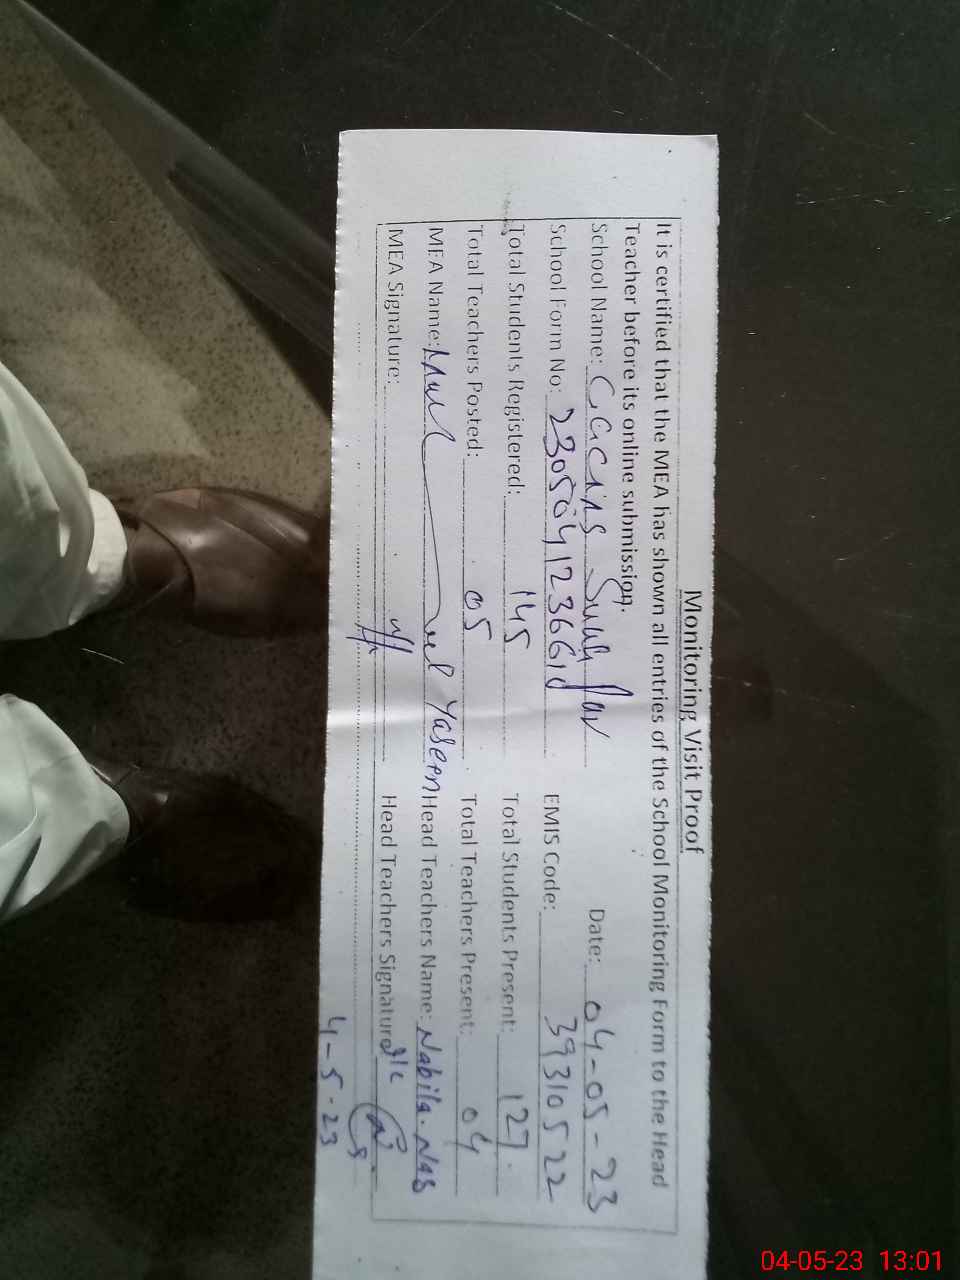 Monitoring Visit Proof
It is certified that the MEA has shown all entries of the School Monitoring Form to the Head
Teacher before its online submission.
School Name: Date: 04-05-23
School Form No: EMIS Code: 39310522
Total Students Registered: 145 Total Students Present: 127
Total Teachers Posted: 05 Total Teachers Present: 04
MEA Name: Yaseen Head Teachers Name: Nabila. Nas
MEA Signature: Head Teachers Signature
4-5-23
04-05-23 13:01